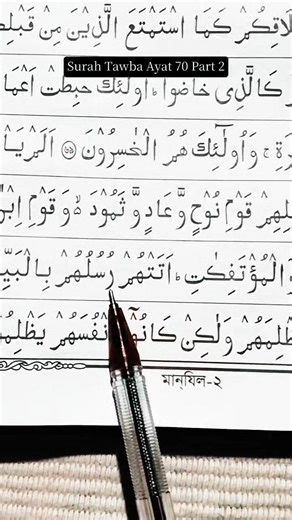 لَاقِكُمْ كَمَا اسْتَمْتَعَ الَّذِيْنَ مِنْ قَبْلِ
Surah Tawba Ayat 70 Part 2
كَالَّذِىْ خَاضُوْا ؕ اُولٰٓئِكَ حَبِطَتْ اَعْمَا
وَاُولٰٓئِكَ هُمُ الْخٰسِرُوْنَ ﴿۶۹﴾ اَلَمْ يَاْ
لِهِمْ قَوْمِ نُوْحٍ وَّعَادٍ وَّثَمُوْدَ ۙ وَقَوْمِ اِبْرٰ
وَالْمُؤْتَفِكٰتِ ؕ اَتَتْهُمْ رُسُلُهُمْ بِالْبَيِّ
ظْلِمَهُمْ وَلٰكِنْ كَانُوْۤا اَنْفُسَهُمْ يَظْلِمُ
মানযিল-২